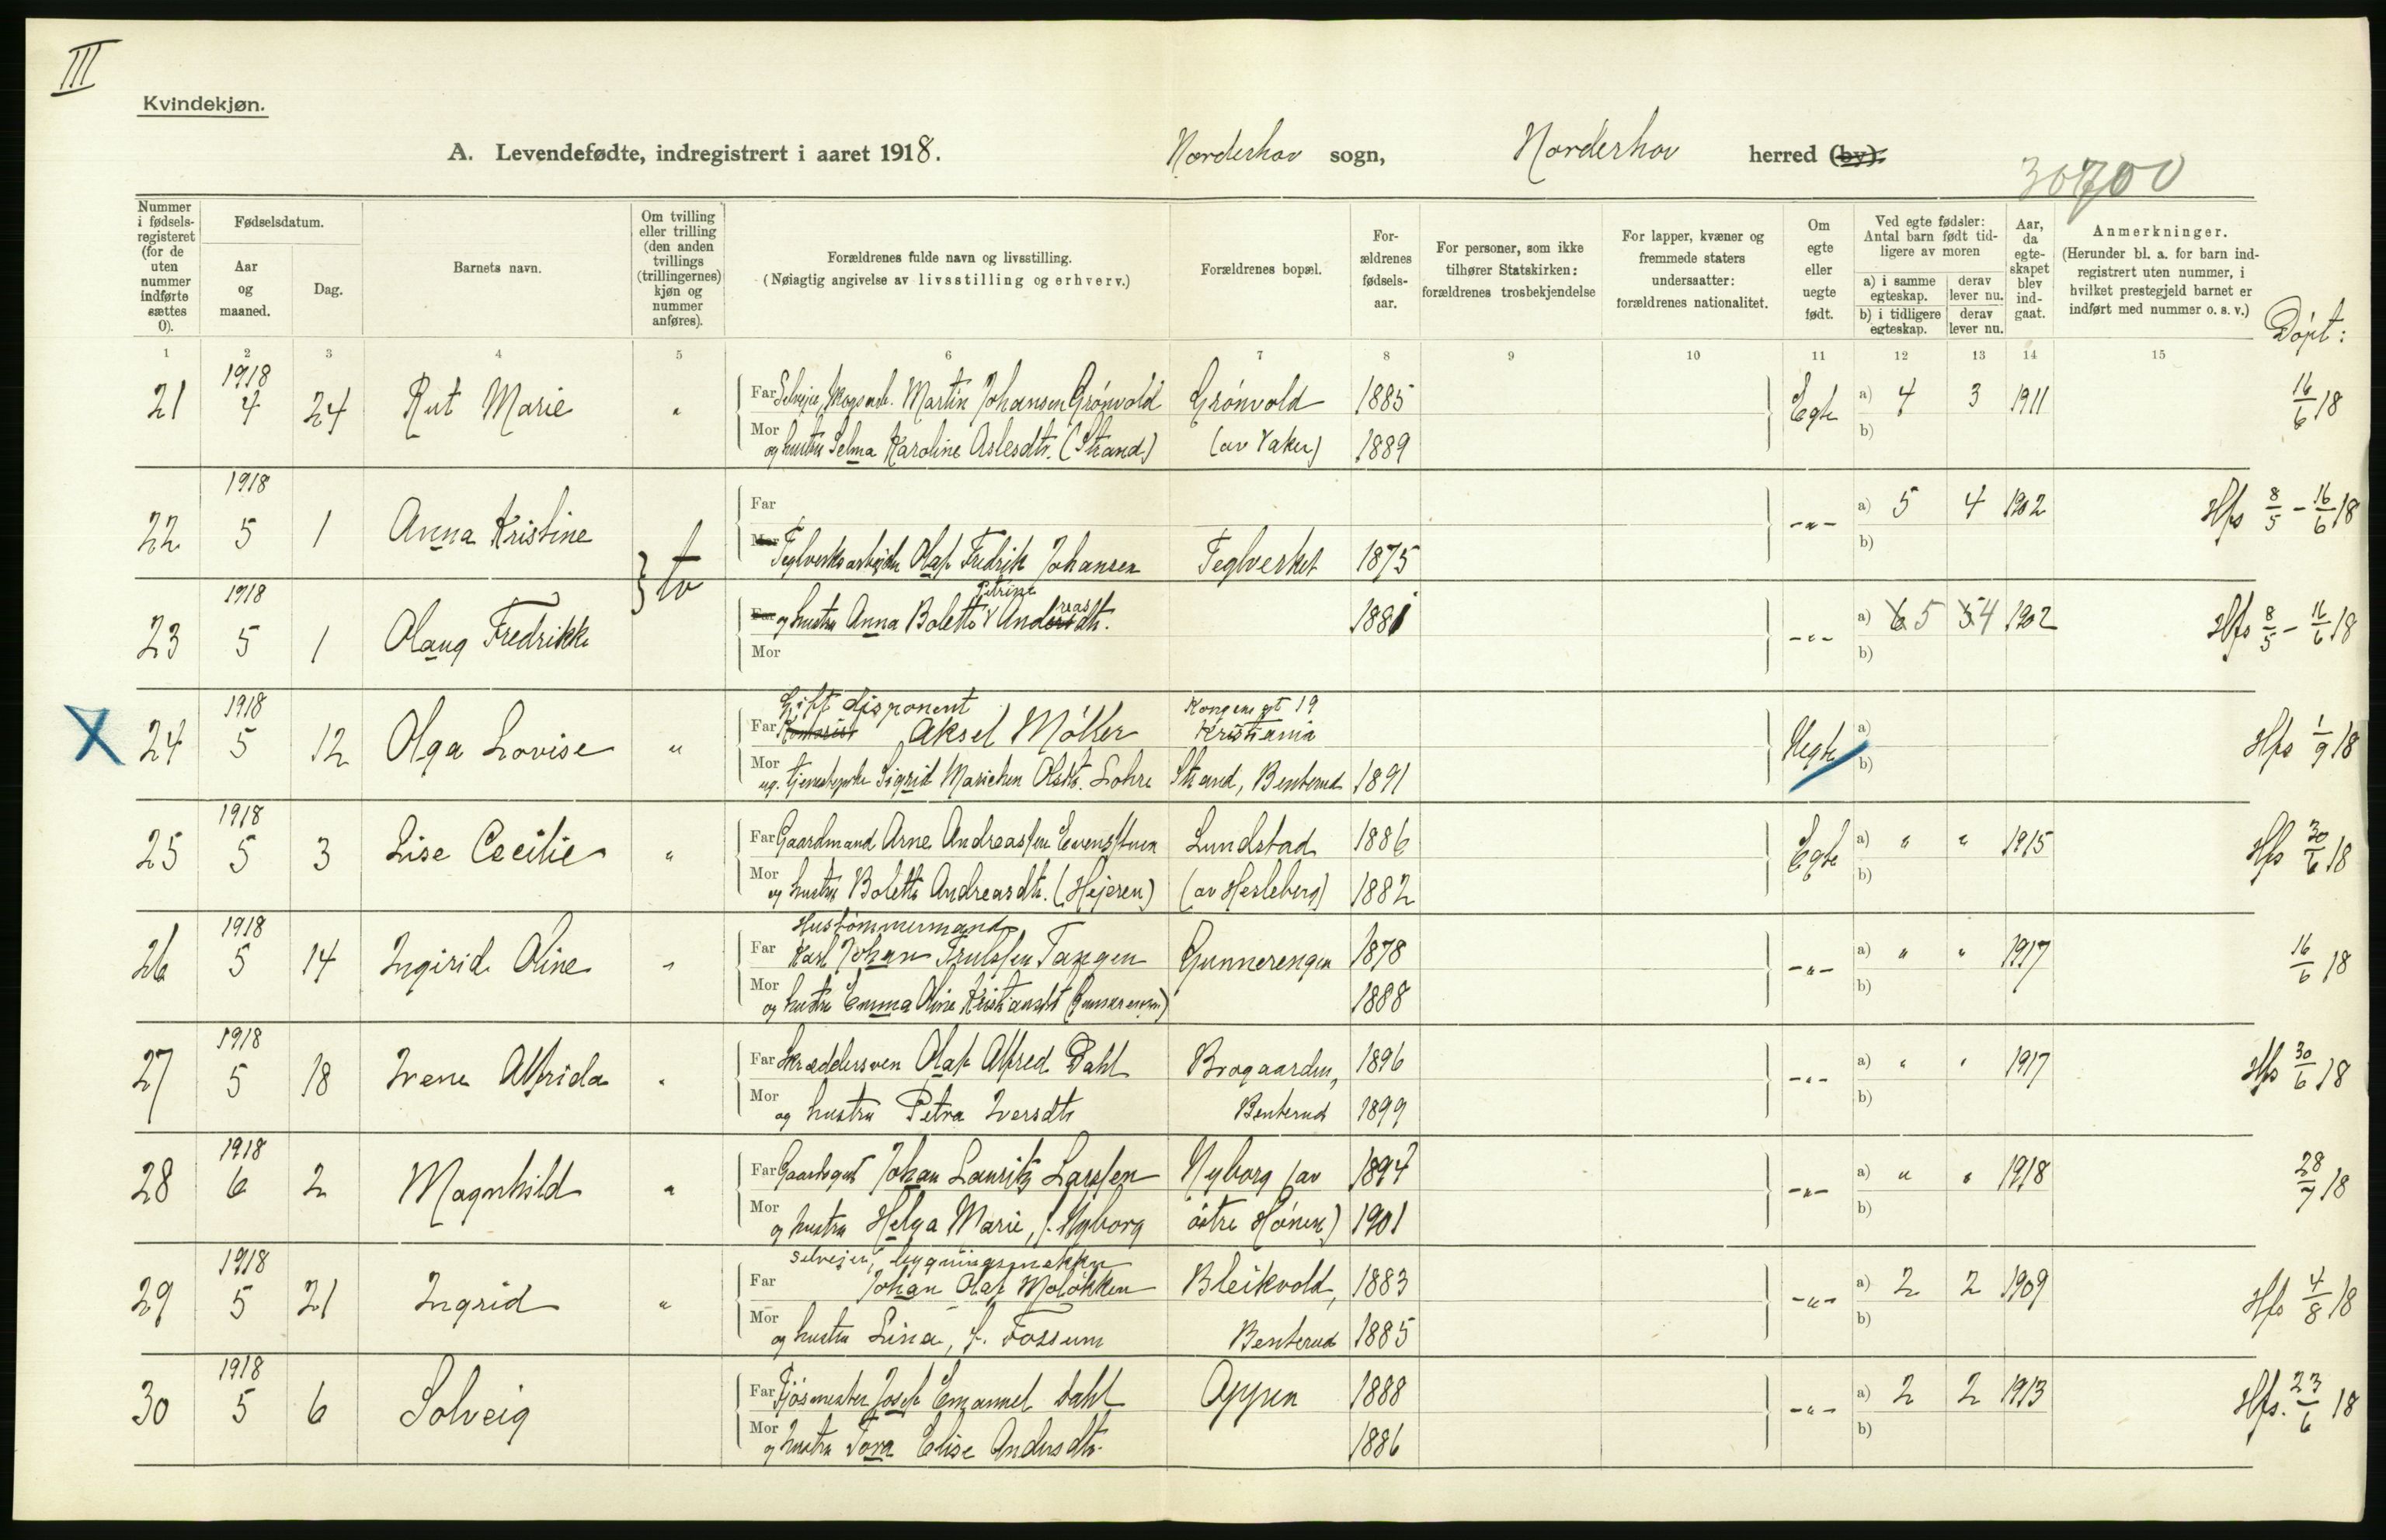 III
Kvindekjøn.
A. Levendefødte, indregistrert i aaret 1918. Norderhov sogn, Norderhov herred (by).
30700
Nummer i fødsels-registeret (for de uten nummer indførte sættes 0).
Fødselsdatum.
Aar og maaned.
Dag.
Barnets navn.
Om tvilling eller trilling (den anden tvillings (trillingernes) kjøn og nummer anføres).
Forældrenes fulde navn og livsstilling.
(Nøiagtig angivelse av livsstilling og erhverv.)
Forældrenes bopæl.
For-ældrenes fødsels-aar.
For personer, som ikke tilhører Statskirken: forældrenes trosbekjendelse
For lapper, kvæner og fremmede staters undersaatter: forældrenes nationalitet.
Om egte eller uegte født.
Ved egte fødsler: Antal barn født tid-ligere av moren
a) i samme egteskap. derav lever nu.
b) i tidligere egteskap. derav lever nu.
Aar, da egte-skapet blev ind-gaat.
Anmerkninger.
(Herunder bl. a. for barn ind-registrert uten nummer, i hvilket prestegjeld barnet er indført med nummer o. s. v.)
Döpt:
1 2 3 4 5 6 7 8 9 10 11 12 13 14 15
21 1918 4 24 Rut Marie " Far Martin Johansen Grönvold Grönvold 1885 Egte a) 4 3 1911 16/6 18
Mor og hustru Selma Karoline Aslesdtr. (Strand) (av Vaker) 1889 b)
22 1918 5 1 Anna Kristine } tv Far -"- a) 5 4 1902 Hfs 8/5 - 16/6 18
Mor Teglverksarbeider Olaf Fredrik Johansen Teglverket 1875 b)
23 1918 5 1 Olaug Fredrikke Far og hustru Anna Bolette Petrine Andreasdtr. 1881 -"- a) 6 5 5 4 1902 Hfs 8/5 - 16/6 18
Mor b)
X 24 1918 5 12 Olga Lovise " Gift disponent
Far Kontorist Aksel Möller Kongens gt 19 Kristiania Uegte a) Hfs 1/9 18
Mor ug. Sigrid Marichen Olsdtr. Lohre Strand, Benterud 1891 b)
25 1918 5 3 Lise Cecilie " Far Gaardmand Arne Andreassen Evensstuen Lundstad 1886 Egte a) " " 1915 Hfs 30/6 18
Mor og hustru Bolette Andreasdtr. (Hejeren) (av Hesleberg) 1882 b)
26 1918 5 14 Ingirid Oline " Hustömmermand
Far Karl Johan Trulssen Tangen Gunnerengen 1878 -"- a) " " 1917 16/6 18
Mor og hustru Emma Oline Kristiansdt (Gunnerengen) 1888 b)
27 1918 5 18 Irene Alfrida " Far Skræddersven Olaf Alfred Dahl Brogaarden, 1896 -"- a) " " 1917 Hfs 30/6 18
Mor og hustru Petra Iversdtr Benterud 1899 b)
28 1918 6 2 Magnhild " Far Gaardsgut Johan Lauritz Larssen Nyborg (av 1894 -"- a) " " 1918 28/7 18
Mor og hustru Helga Marie, f. Nyborg östre Hönen) 1901 b)
29 1918 5 21 Ingrid " selveier, bygningssnekker
Far Johan Olaf Moløkken Bleikvold, 1883 -"- a) 2 2 1909 Hfs 4/8 18
Mor og hustru Lina, f. Fossum Benterud 1885 b)
30 1918 5 6 Solveig Far Fjösmester Josef Emanuel Dahl Oppen 1888 -"- a) 2 2 1913 Hfs. 23/6 18
Mor og hustru Tora Elise Andersdtr. 1886 b)